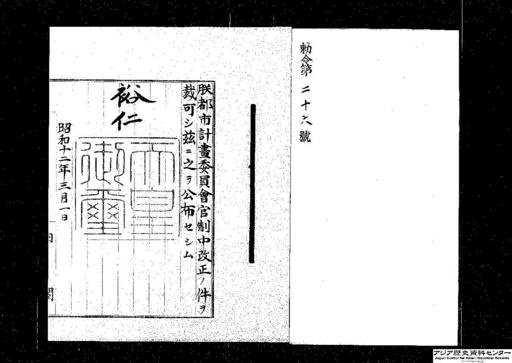 勅令第二十六號
朕都市計畫委員會官制中改正ノ件ヲ
裁可シ茲ニ之ヲ公布セシム
裕仁
天皇御璽
昭和十二年三月一日
内閣
アジア歴史資料センター
Japan Center for Asian Historical Records